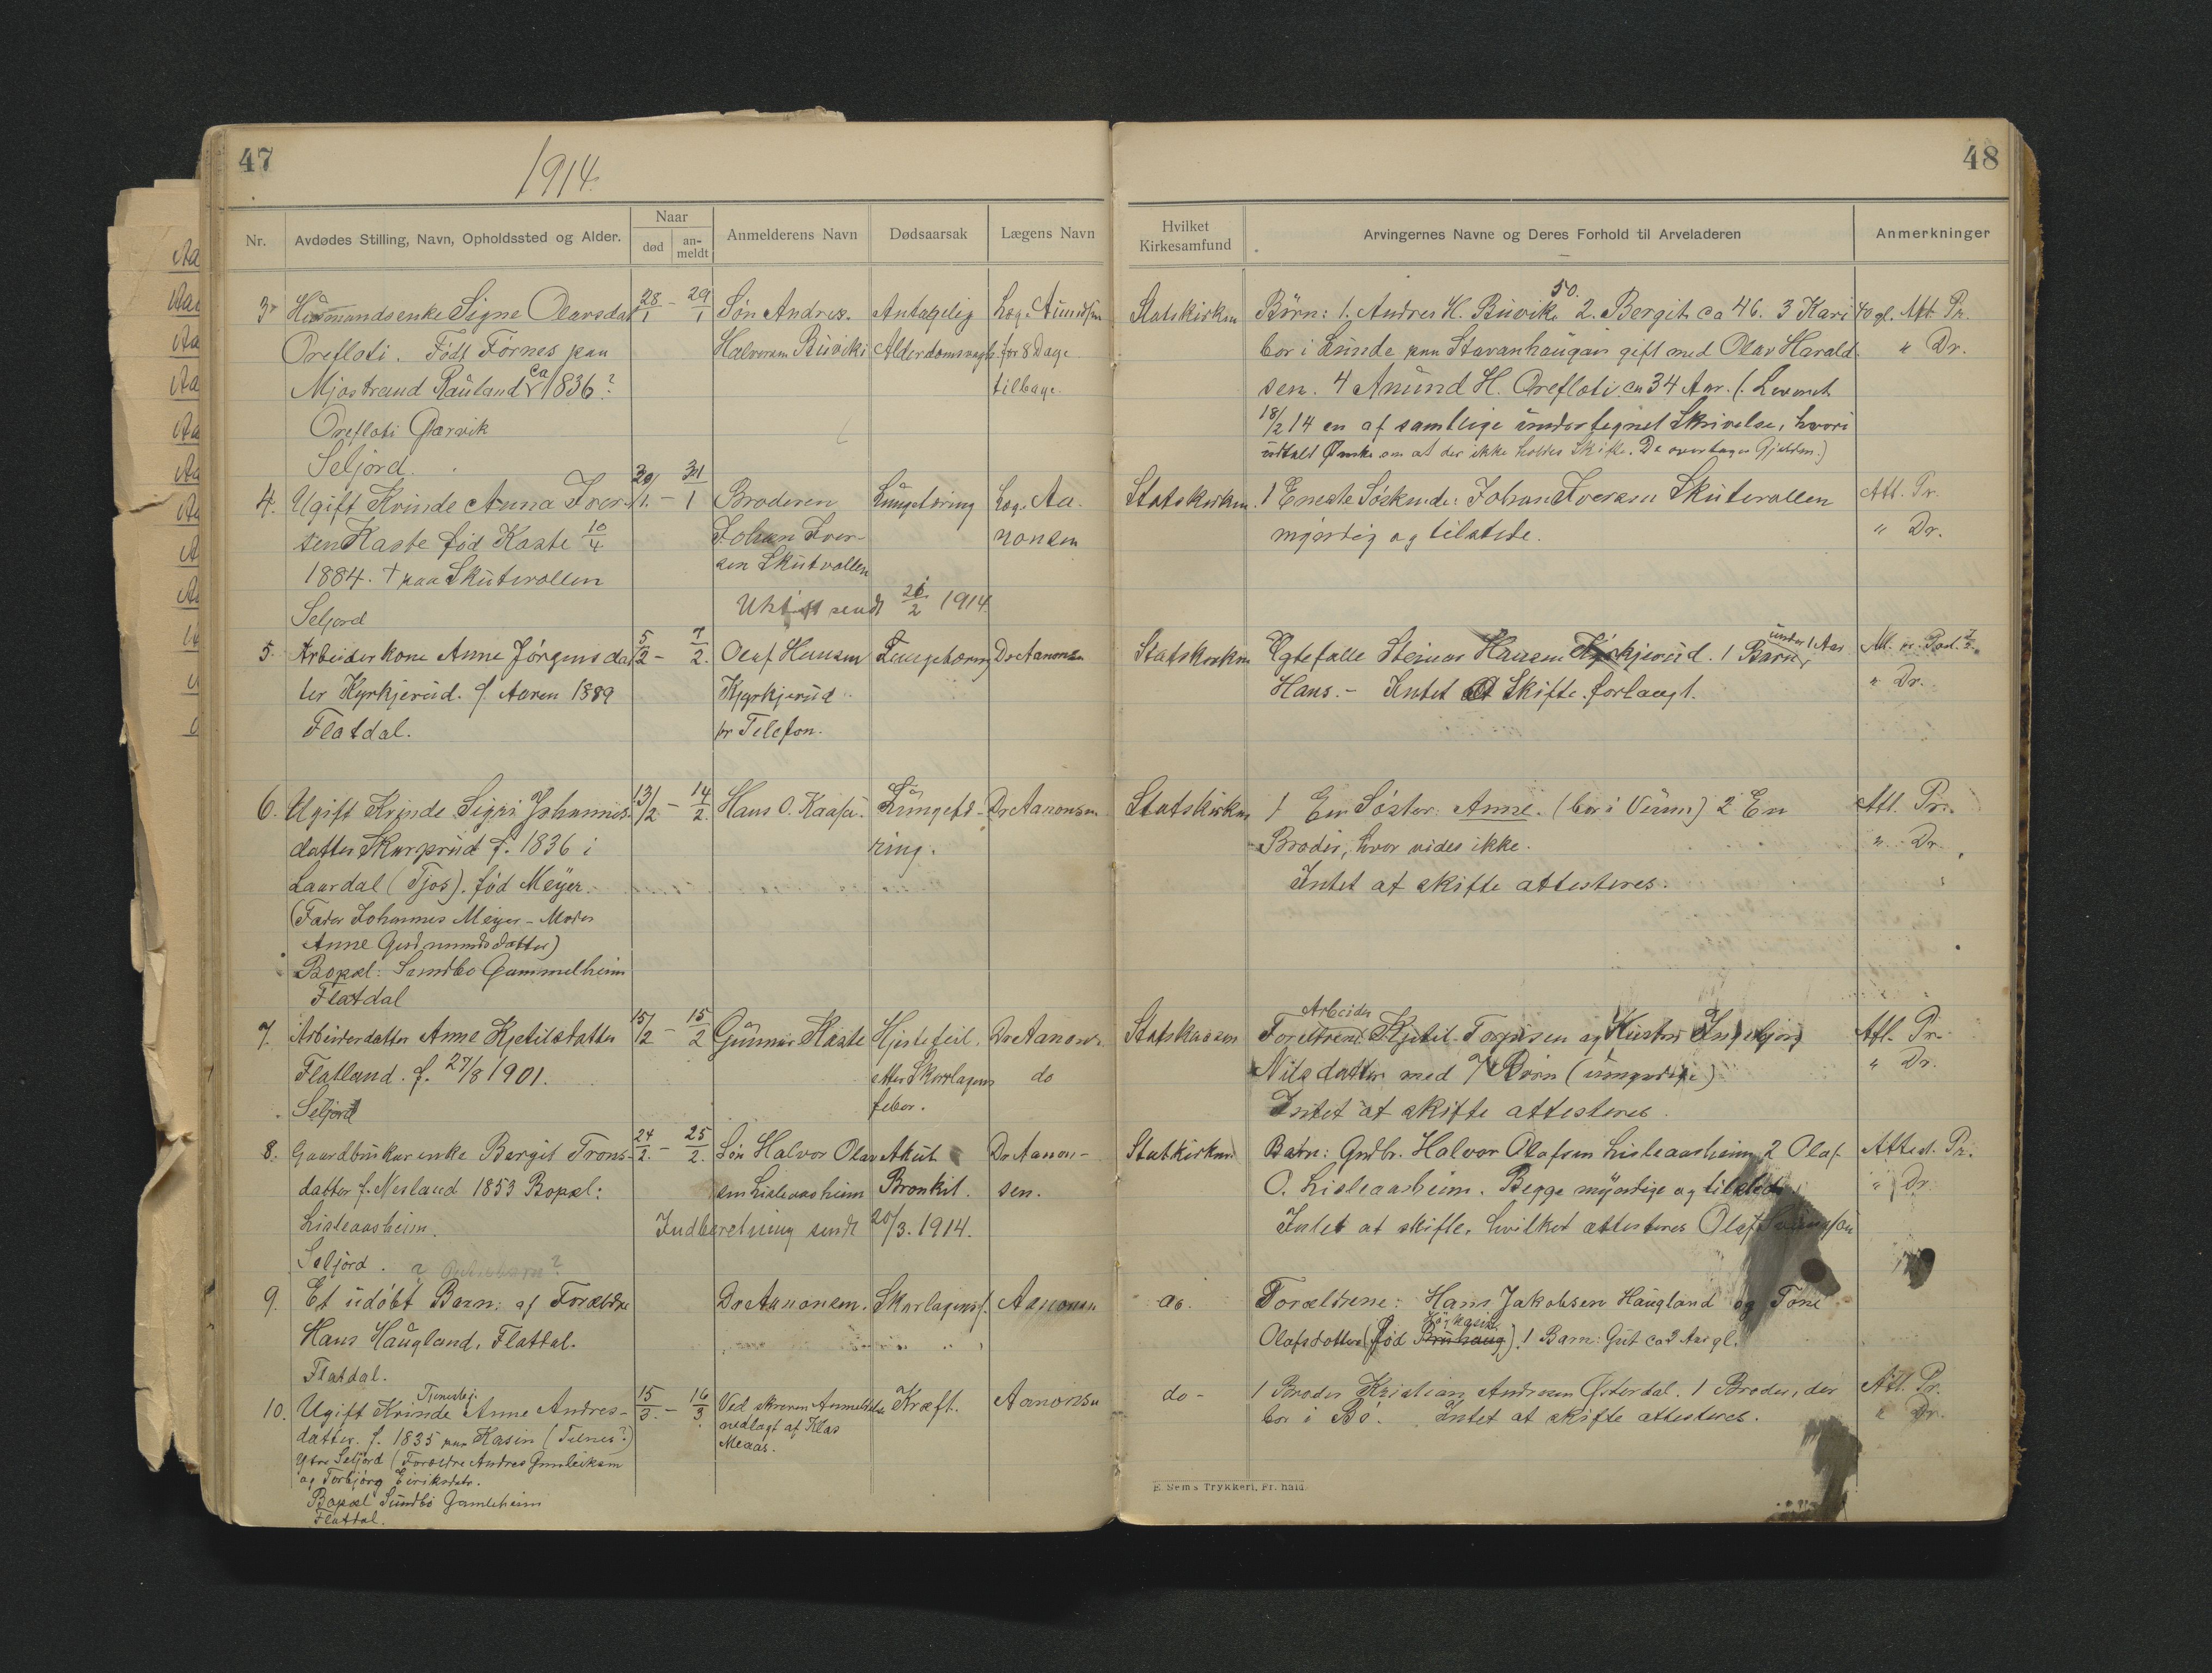 47
1914.
48
Nr.
Avdødes Stilling, Navn, Opholdssted og Alder.
Naar
død
an-
meldt
Anmelderens Navn
Dødsaarsak
Lægens Navn
Hvilket
Kirkesamfund
Arvingernes Navne og Deres Forhold til Arveladeren
Anmerkninger
3
Husmandsenke Signe Olavsdat
Orefloti. Født Førnes paa
Mjøstrand Rauland ca 1836?
Orefloti
Seljord.
28/1 - 29/1
Søn Andres
Halvorsen Buviki
Antagelig
Alderdomsvagh.
Læge
for 8 Dage
tilbage.
Statskirken
Børn: 1. Andres H. Buvik. 50. 2. Bergit ca 46. 3 Kari 40 gl.
bor i Lunde paa Stavanhaugan gift med Olav Harald
sen. 4 Anund H. Orefloti ca 34 Aar. (: Leveret
18/2 14 en af samtlige undertegnet Skrivelse, hvori
udtalt Ønske om at der ikke holdes Skifte. De overtager Gjælden.)
Att. Pr.
" Dr.
4.
Ugift Kvinde Anna Iver-
sen Kaste fød Kaste 10/4
1884. † paa Skutevollen
Seljord
30/1. - 31/1
Broderen
Johan Iver-
sen Skutvollen
Lungetæring
Læge Aa-
nonsen
sendt 26/2 1914.
Statskirken.
1 Eneste Søskende: Johan Iversen Skutevollen
myndig og tilstede.
Att. Pr.
" Dr.
5.
Arbeiderkone Anne Jørgensdat
ter Kyrkjerud. f. Aaren 1889
Flatdal.
5/2 - 7/2.
Olaf Hansen
Kyrkjerud
pr Telefon.
Lungetæring
Dr Aanonsen
Statskirken
Ægtefælle Steinar Hansen Kyrkjerud. 1 Barn, under 1 Aar
Hans. - Intet at Skifte forlangt.
" Dr.
6.
Ugift Kvinde Sigri Johannes-
datter Skorprud f. 1836 i
Laardal (Tjos). fød Meyer.
(Fader Johannes Meyer - Moder
Anne Gudmundsdatter)
Bopæl: Sundbø Gammelheim
Flatdal
13/2 - 14/2.
Hans O. Kaasa.
Lungetæ-
ring.
Dr Aanonsen
Statskirken
1 En Søster: Anne. (bor i Vinu) 2 En
Broder, hvor vides ikke.
Intet at skifte attesteres.
Att. Pr.
" Dr.
7.
Arbeiderdatter Anne Kjetilsdatter
Flatland. f. 27/8 1901.
Seljord
15/2 - 15/2
Gunnar Kaste
Hjertefeil.
etter Skarlagens
feber.
Dr Aanons.
do
Arbeider
Forældrene: Kjetil Torjusen og Kustru Ingebjørg
Nilsdatter med 7 Børn (umyndige)
Intet at skifte attesteres.
Att. Pr.
" Dr.
8.
Gaardbrukerenke Bergit Trons-
datter f. Nesland 1853 Bopæl:
Lisleaasheim.
Seljord.
24/2. - 25/2.
Søn Halvor Olav
sen Lisleaasheim
Akut
Bronkit.
Dr Aanon-
sen.
Indberetning sendt 20/3. 1914.
Statkirken
Børn: Grdbr. Halvor Olafsen Lisleaasheim 2 Olaf
O. Lisleaasheim. Begge myndige og tilstede.
Intet at skifte, hvilket attesteres Olaf
Attest. Pr.
" Dr.
9.
Et udøbt Barn: af Forældre
Hans Haugland, Flatdal.
Flatdal.
Dr Aanonsen.
Skarlagensf.
Aanonsen
do.
Forældrene: Hans Jakobsen Haugland og Tone
Olafsdatter (fød Bruhaug). 1 Barn: Gut ca 3 Aar gl.
10.
Ugift Kvinde Tjenestepi. Anne Andres-
datter. f. 1835 paa Hasin (Tilnes?)
Ytre Seljord (Forældre Andres Gunleiksen
og Torbjørg Eiriksdatr.
Bopæl Sundbø Gamleheim
Flatdal.
15/3. - 16/3
Ved skreven Anmeldelse
nedlagt af Klas
Meaas.
Kræft.
Aanonsen
do -
1 Broder Kristian Andresen Østerdal. 1 Broder, der
bor i Bø. Intet at skifte attesteres.
Att. Pr.
" Dr.
E. Sems Trykkeri, Fr. hald.